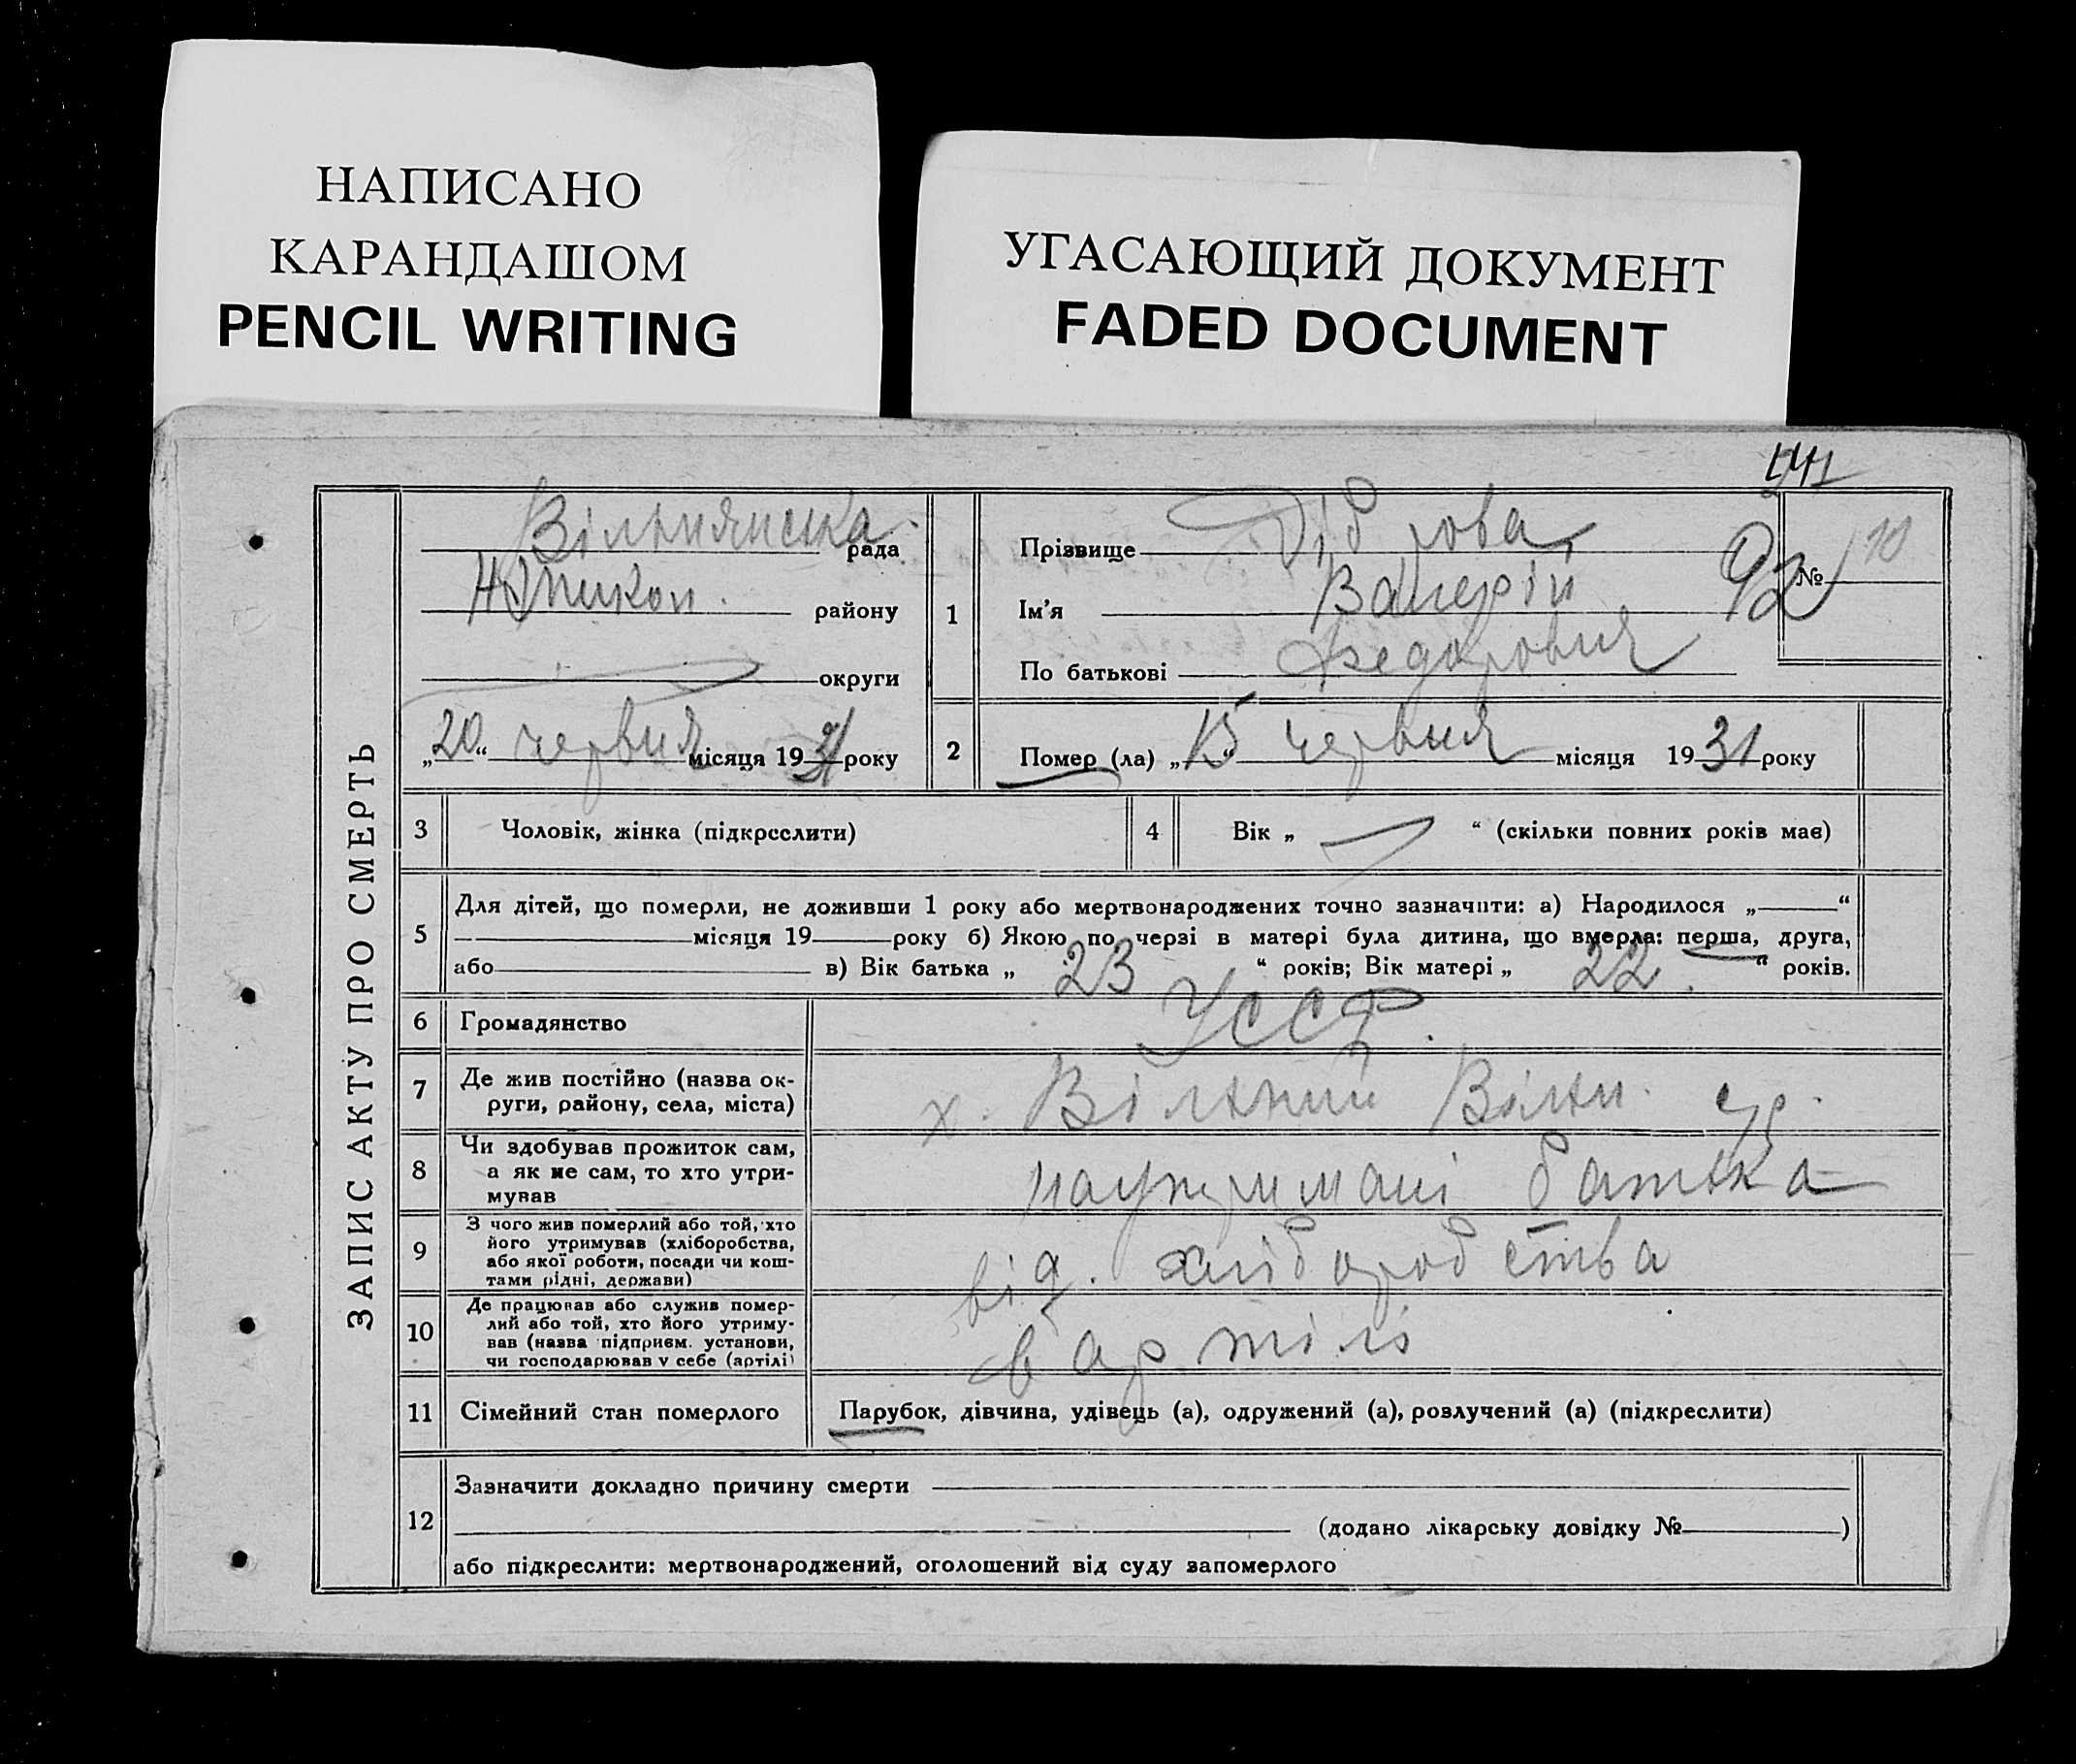 НАПИСАНО
КАРАНДАШОМ
PENCIL WRITING
УГАСАЮЩИЙ ДОКУМЕНТ
FADED DOCUMENT
ЗАПИС АКТУ ПРО СМЕРТЬ
Вільнянська рада
району
округи
„20“ червня місяця 1931 року
1
Прізвище Діброва
Ім'я Валерій
По батькові Федорович
№ 10
92
2
Помер (ла) „15“ червня місяця 1931 року
3 Чоловік, жінка (підкреслити)
4 Вік „ “ (скільки повних років має)
5
Для дітей, що померли, не доживши 1 року або мертвонароджених точно зазначити: а) Народилося „ “
місяця 19 року б) Якою по черзі в матері була дитина, що вмерла: перша, друга,
або в) Вік батька „ 23 “ років; Вік матері „ 22 “ років.
6 Громадянство УССР.
7 Де жив постійно (назва ок-
руги, району, села, міста)
х. Вільний Вільн. с/р.
8 Чи здобував прожиток сам,
а як не сам, то хто утри-
мував
на утримані батька
9 З чого жив померлий або той, хто
його утримував (хліборобства,
або якої роботи, посади чи кош-
тами рідні, держави)
від. хліборобства
10 Де працював або служив помер-
лий або той, хто його утриму-
вав (назва підприєм. установи,
чи господарював у себе (артілі)
в артілі
11 Сімейний стан померлого Парубок, дівчина, удівець (а), одружений (а), розлучений (а) (підкреслити)
12
Зазначити докладно причину смерти
(додано лікарську довідку № )
або підкреслити: мертвонароджений, оголошений від суду запомерлого